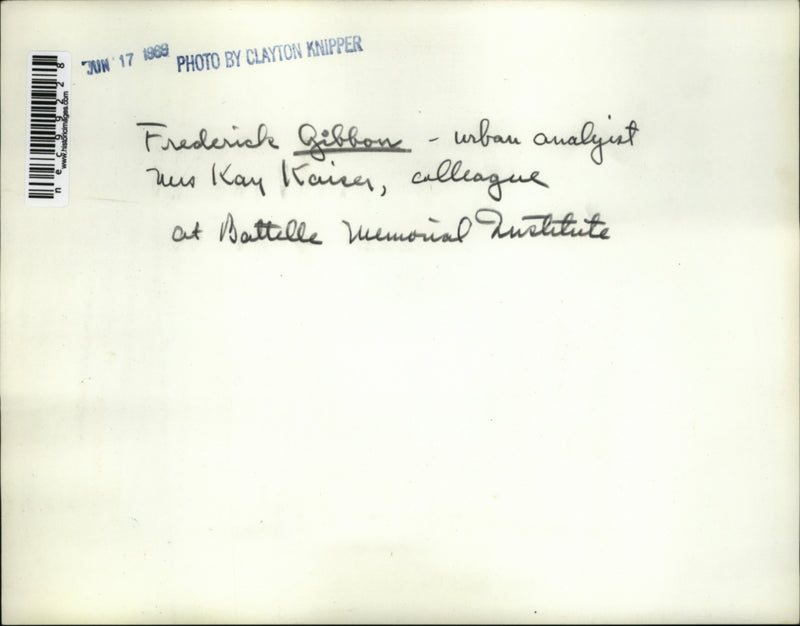 JUN 17 1969 PHOTO BY CLAYTON KNIPPER
nec99228
www.historicimages.com
Frederick Gibbon - urban analyist
Mrs Kay Kaiser, colleague
at Battelle Memorial Institute